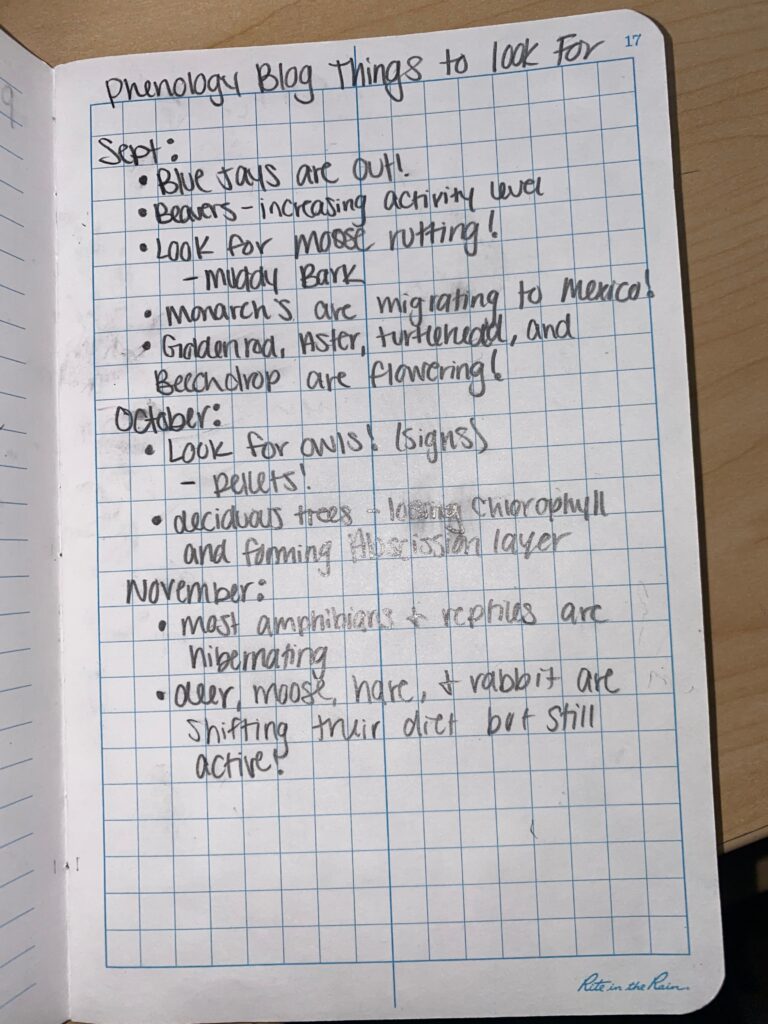 17
Phenology Blog Things to look For
Sept:
• Blue Jays are out!
• Beavers - increasing activity level
• Look for moose rutting!
- muddy Bark
• monarch's are migrating to Mexico!
• Goldenrod, Aster, turtlehead, and
Beechdrop are flowering!
October:
• Look for owls! (signs)
- pellets!
• deciduous trees - losing Chlorophyll
and forming Abscission layer
November:
• most amphibians + reptiles are
hibernating
• deer, moose, hare, + rabbit are
shifting their diet but still
active!
Rite in the Rain